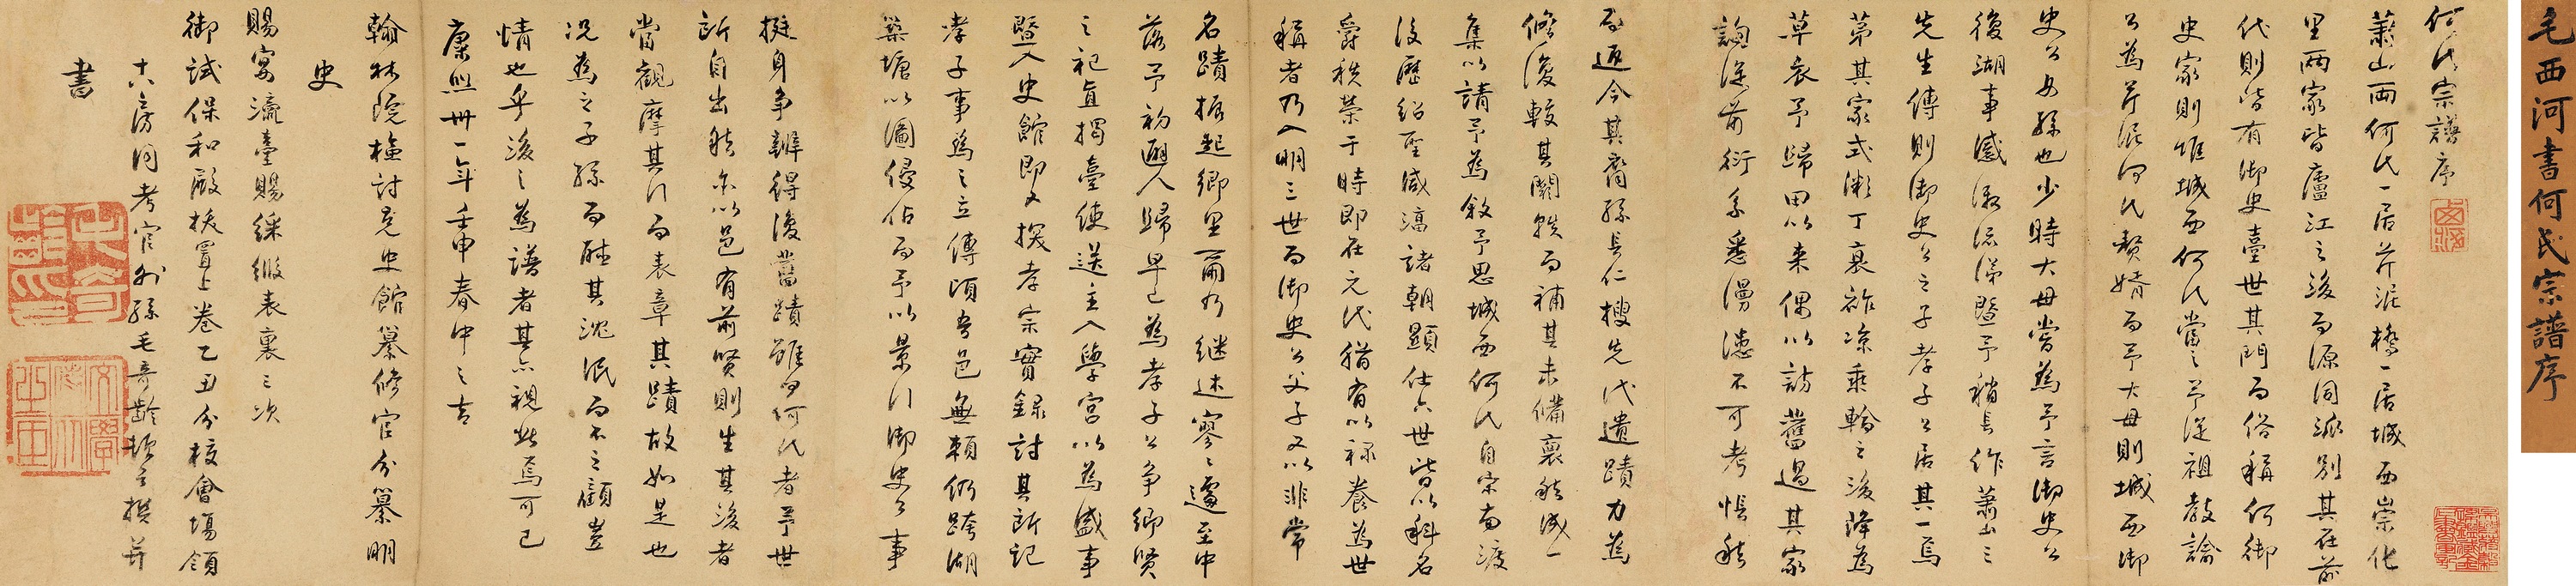 毛西河書何氏宗譜序
何氏宗譜序
蕭山兩何氏一居芹泥橋一居城西崇化
里兩家皆廬江之後而源同派別其在前
代則皆有御史臺世其門而俗稱何御
史家則惟城西何氏當之予從祖教諭
公為芹泥何氏贅婿而予大母則城西御
史公女孫也少時大母嘗為予言御史公
復湖事感激流涕暨予稍長作蕭山三
先生傳則御史公之子孝子公居其一焉
第其家式漸丁衰祚凉乘輪之後降為
草衣予歸田以來偶以訪舊過其家
詢從前衍系悉漫漶不可考悵然
而返今其裔孫長仁搜先代遺蹟力為
修復較其闕軼而補其未備裒然成一
集以請予為敘予思城西何氏自宋南渡
後歷紹聖咸淳諸朝顯仕六世皆以科名
爵秩榮于時即在元代猶有以祿養為世
稱者乃入明三世而御史公父子又以非常
名蹟振起鄉里爾乃繼述寥寥遽至中
落予初避人歸早已為孝子公爭鄉賢
之祀直揭臺使送主入學宮以為盛事
暨入史館即又撰孝宗實錄討其所記
孝子事為之立傳頃者邑無賴仍跨湖
築塘以圖侵佔而予以景行御史公事
挺身爭辨得復舊蹟雖曰何氏者予世
所自出然亦以邑有前賢則生其後者
當觀摩其行而表章其蹟故如是也
况為之子孫而聽其沈泯而不之顧豈
情也乎後之為譜者其亦視此焉可已
康熙卅一年壬申春中之吉
翰林院檢討充史館纂修官分纂明
史
賜宴瀛臺賜綵緞表裏三次
御試保和殿挨置上卷乙丑分校會塲領
十六房同考官外孫毛奇齡頓首撰并
書